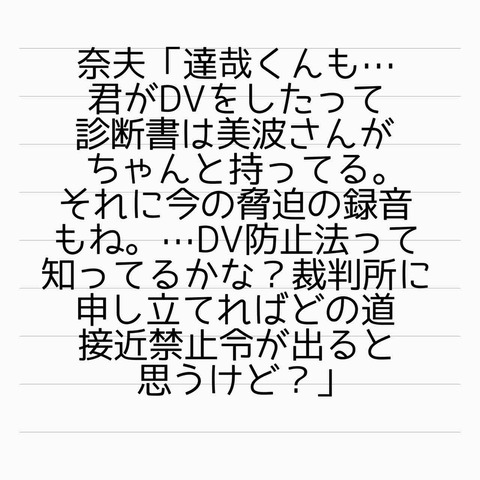 奈夫「達哉くんも…
君がDVをしたって
診断書は美波さんが
ちゃんと持ってる。
それに今の脅迫の録音
もね。…DV防止法って
知ってるかな？裁判所に
申し立てればどの道
接近禁止令が出ると
思うけど？」